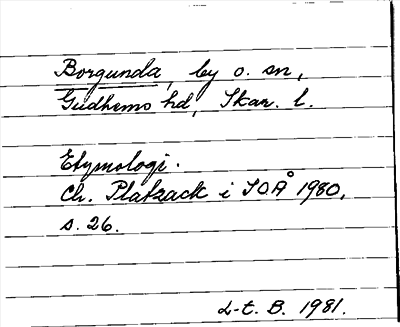 Borgunda, by o. sn,
Gudhems hd, Skar. l.
Etymologi.
Ch. Platzack i SOÅ 1980,
s. 26.
L-t. B. 1981.